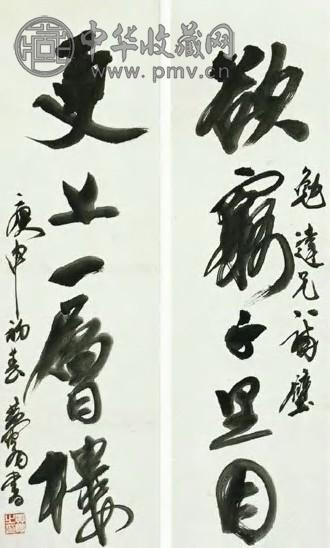 中华收藏网
www.pmv.cn
勉達兄補壁
欲窮千里目
更上一層樓
庚申初春 書